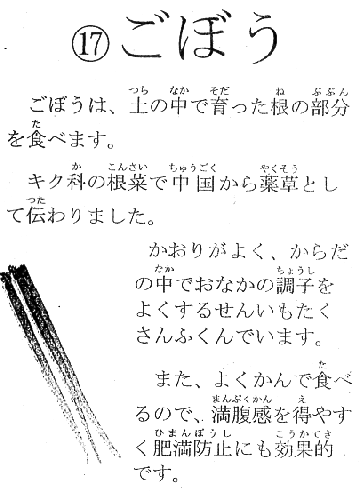 ⑰ごぼう
ごぼうは、土の中で育った根の部分
を食べます。
キク科の根菜で中国から薬草とし
て伝わりました。
かおりがよく、からだ
の中でおなかの調子を
よくするせんいもたく
さんふくんでいます。
また、よくかんで食べ
るので、満腹感を得やす
く肥満防止にも効果的
です。